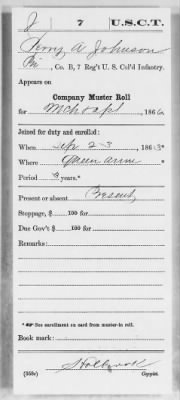 J 7 U.S.C.T.
Perry A Johnson
Pvt, Co. B, 7 Reg't U. S. Col'd Infantry.
Appears on
Company Muster Roll
for Mch & Apl, 1866
Joined for duty and enrolled:
When Sep 23, 1863*
Where Queen Anne *
Period 3 years.*
Present or absent Present
Stoppage, $ 100 for
Due Gov't $ 100 for
Remarks:
* See enrollment on card from muster-in roll.
Book mark:
Holbrook
(358c) Copyist.